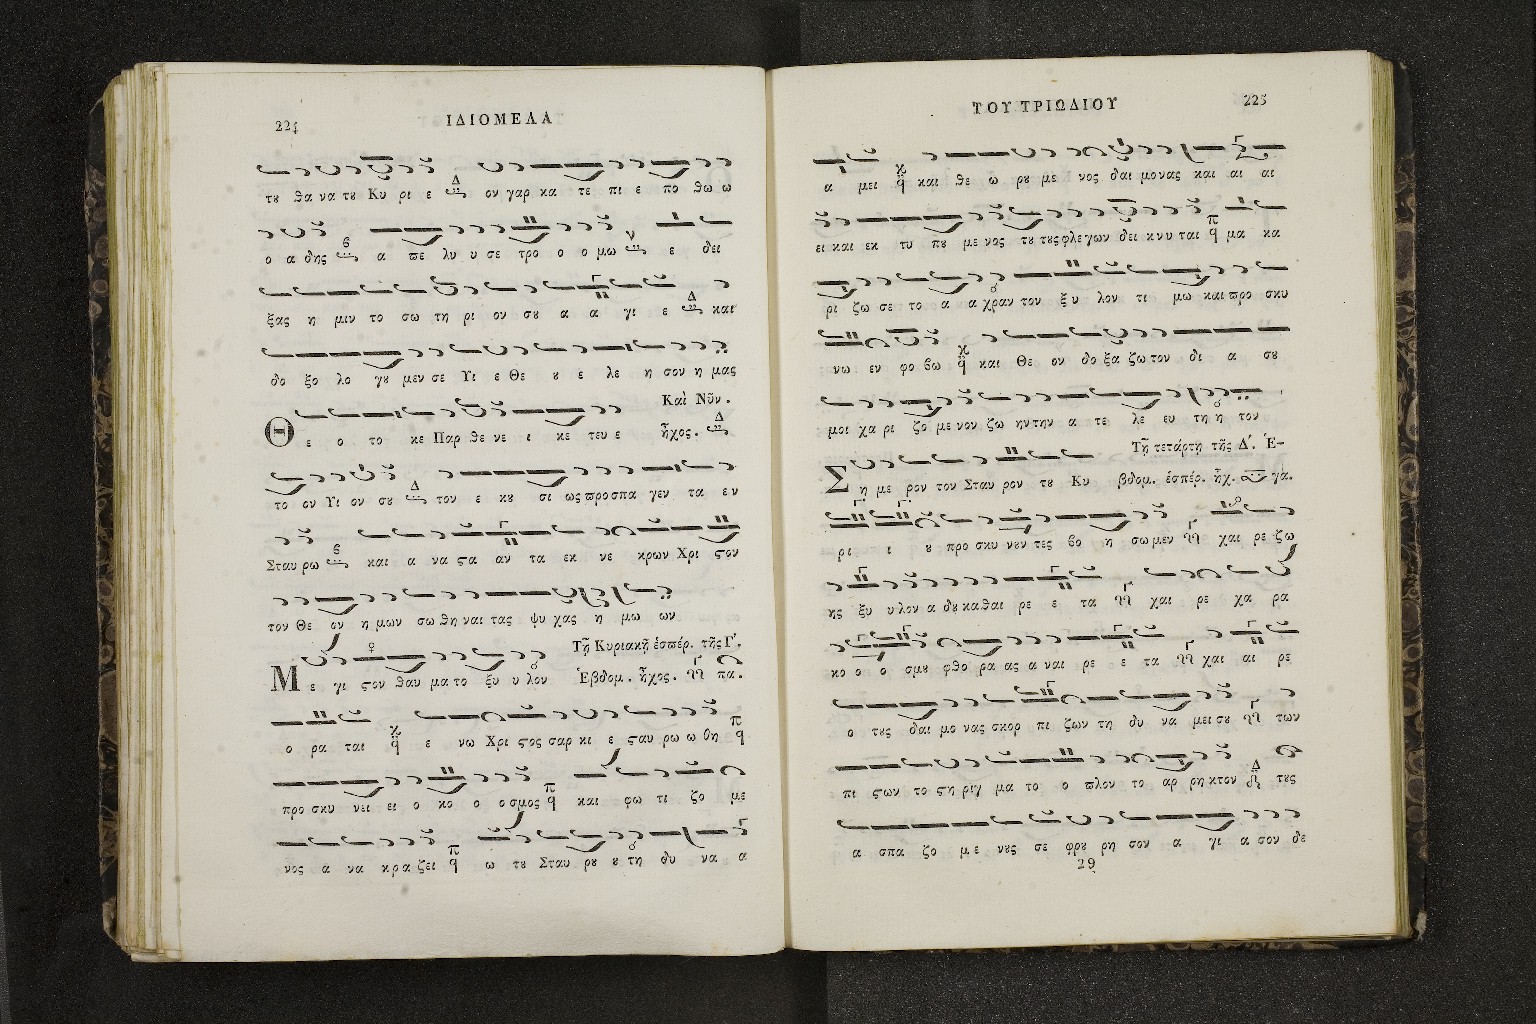 224
ΙΔΙΟΜΕΛΑ
τȣ θα να τȣ Κυ ρι ε ον γαρ κα τε πι ε πο θω ω
ο α δης α πε λυ υ σε τρο ο ο μω ε δει
ξας η μιν το σω τη ρι ον σȣ α α γι ε και
δο ξο λο γȣ μεν σε Υι ε Θε ȣ ε λε η σον η μας
Καὶ Νῦν.
Θ ε ο το κε Παρ θε νε ι κε τευ ε ἦχος.
το ον Υι ον σȣ τον ε κȣ σι ως προσπα γεν τα εν
Σταυ ρω και α να ϛα αν τα εκ νε κρων Χρι ϛον
τον Θε ον η μων σω θη ναι τας ψυ χας η μω ων
Τῇ Κυριακῇ ἑσπέρ. τῆς Γ΄.
Μ ε γι ϛον θαυ μα το ξυ υ λον Ἑβδομ. ἦχος. πα.
ο ρα ται ε νω Χρι ϛος σαρ κι ε ϛαυ ρω ω θη
προ σκυ νει ει ο κο ο ο σμος και φω τι ζο με
νος α να κρα ζει ω τȣ Σταυ ρȣ ȣ τη δυ να α
ΤΟΥ ΤΡΙΩΔΙΟΥ
225
α μει και θε ω ρȣ με νος δαι μονας και αι αι
ει και εκ τυ πȣ με νος τȣ τȣς φλε γων δει κνυ ται μα κα
ρι ζω σε το α α χραν τον ξυ λον τι μω και προ σκυ
νω εν φο βω και Θε ον δο ξα ζω τον δι α σȣ
μοι χα ρι ζο με νον ζω ην την α τε λε ευ τη η τον
Τῇ τετάρτῃ τῆς Δ΄. Ἑ-
Σ η με ρον τον Σταυ ρον τȣ Κυ βδομ. ἑσπέρ. ἦχ. γα.
ρι ι ȣ προ σκυ νȣν τες βο η σω μεν χαι ρε ζω
ης ξυ υ λον α δȣ κα θαι ρε ε τα χαι ρε χα ρα
κο ο ο σμȣ φθο ρα ας α ναι ρε ε τα χαι αι ρε
ο τȣς δαι μο νας σκορ πι ζων τη δυ να μει σȣ των
πι ϛων το ϛη ριγ μα το ο πλον το αρ ρη κτον τȣς
α σπα ζο με νȣς σε φρȣ ρη σον α γι α σον δε
29